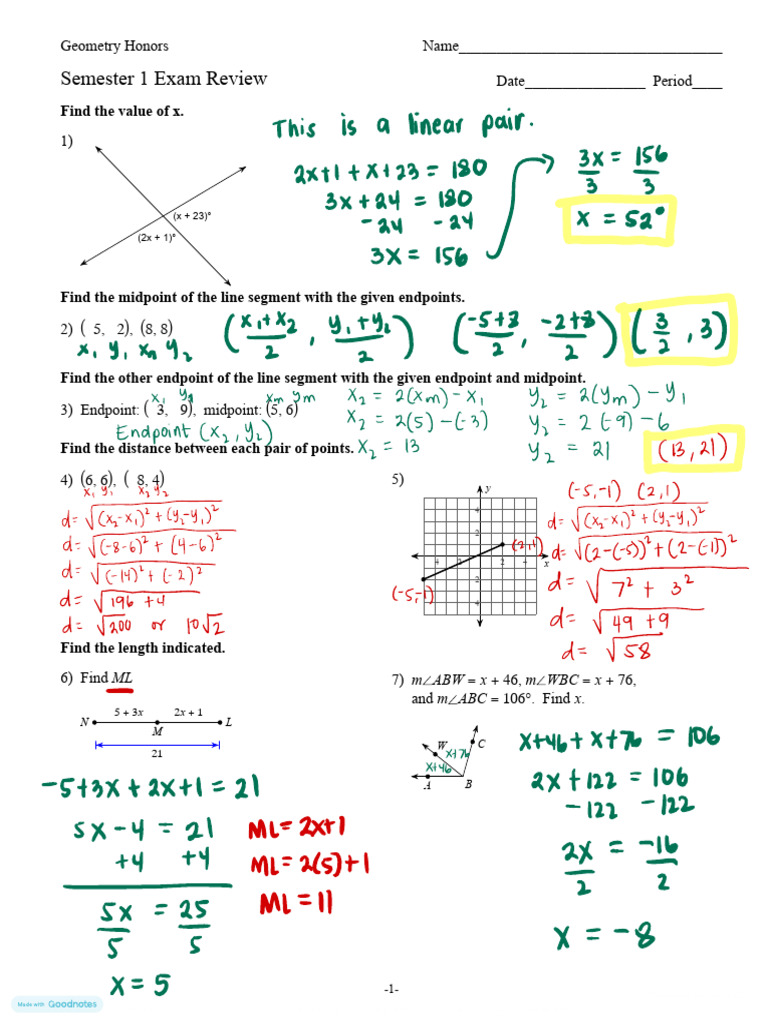 Geometry Honors Name___________________________________
Semester 1 Exam Review Date________________ Period____
Find the value of x.
This is a linear pair.
1)
(x + 23)°
(2x + 1)°
2x+1 + x+23 = 180
3x + 24 = 180
-24 -24
3x = 156
3x = 156
3 3
x = 52°
Find the midpoint of the line segment with the given endpoints.
2) ( 5, 2), (8, 8)
x₁ y₁ x₂ y₂
(x₁+x₂/2 , y₁+y₂/2) (-5+8/2 , -2+8/2) (3/2 , 3)
Find the other endpoint of the line segment with the given endpoint and midpoint.
x₁ y₁ xm ym
3) Endpoint: ( 3, 9), midpoint: (5, 6)
Endpoint (x₂, y₂)
x₂ = 2(xm) - x₁
x₂ = 2(5) - (-3)
x₂ = 13
y₂ = 2(ym) - y₁
y₂ = 2(-9) - 6
y₂ = 21
(13, 21)
Find the distance between each pair of points.
4) (6, 6), ( 8, 4)
x₁ y₁ x₂ y₂
d = √(x₂-x₁)² + (y₂-y₁)²
d = √(-8-6)² + (4-6)²
d = √(-14)² + (-2)²
d = √196 + 4
d = √200 or 10√2
5)
y
x
4
2
2
4
4
2
2
4
(2,1)
(-5,-1)
(-5,-1) (2,1)
d = √(x₂-x₁)² + (y₂-y₁)²
d = √(2-(-5))² + (2-(-1))²
d = √7² + 3²
d = √49 + 9
d = √58
Find the length indicated.
6) Find ML
5 + 3x 2x + 1
N M L
21
-5+3x + 2x+1 = 21
5x - 4 = 21
+4 +4
5x = 25
5 5
x = 5
ML = 2x+1
ML = 2(5)+1
ML = 11
7) m∠ABW = x + 46, m∠WBC = x + 76,
and m∠ABC = 106°. Find x.
W C
x+76
x+46
A B
x+46 + x+76 = 106
2x + 122 = 106
-122 -122
2x = -16
2 2
x = -8
-1-
Made with Goodnotes